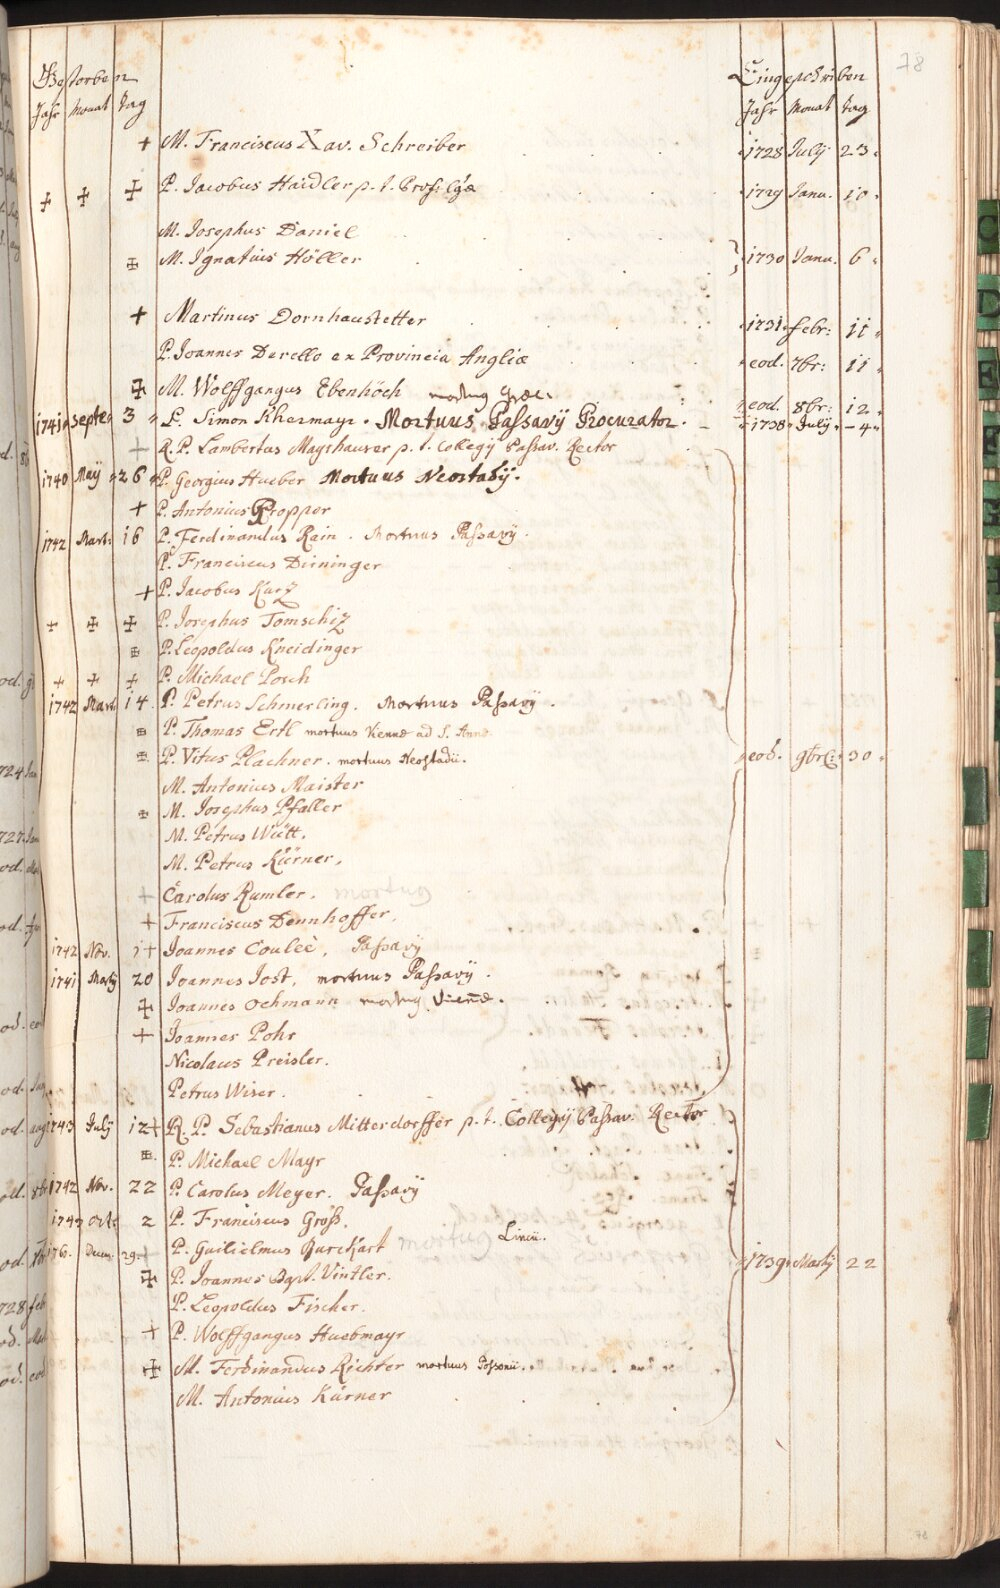 78
Gestorben Eingeschriben
Jahr Monat tag Jahr Monat tag
+ M. Franciscus Xav. Schreiber 1728 July 23
+ + + P. Jacobus Haidler p. t. 1729 Janu. 10
M. Josephus Daniel
+ M. Ignatius Höller 1730 Janu. 6
+ Martinus Dornhaustetter 1731 febr: 11
P. Joannes Derello ex Provincia Angliæ eod. 7br: 11
+ M. Wolffgangus Ebenhöch eod. 8br: 12
1741 Septe 3 P. Simon Khermayr. Mortuus Passavÿ Procurator. 1738 July 4
+ R. P. Lambertus Mayrhauser p. t. Collegÿ Passav. Rector
1740 Maÿ 26 P. Georgius Hueber Mortuus Neostadÿ.
+ P. Antonius Kroppor
1742 Mart: 16 P. Ferdinandus Rain. Mortuus Passavÿ.
P. Franciscus Dirninger
+ P. Jacobus Kurz
+ + + P. Josephus Tomschiz
+ P. Leopoldus Kneidinger
+ + + P. Michael Posch
1742 Mart: 14. P. Petrus Schmerling. Mortuus Passavÿ.
+ P. Thomas Ertl mortuus Viennæ ad S. Annæ
+ P. Vitus Plachner. mortuus Neostadii. eod. 9br: 30
M. Antonius Maister
+ M. Josephus Pfaller
M. Petrus Wütt.
M. Petrus Kürner.
+ Carolus Rumler. mortuus
+ Franciscus Dennhoffer.
1742 Nov. 1+ Joannes Couleè, Passavÿ
1741 Martÿ 20 Joannes Jost, mortuus Passavÿ.
+ Joannes Ochmann mortuus Viennæ.
+ Joannes Pohr
Nicolaus Preisler.
Petrus Wiser.
1743 July 12+ R. P. Sebastianus Mitterdorffer p. t. Collegÿ Passav. Rector
+ P. Michael Mayr
1742 Nov. 22 P. Carolus Meyer. Passavÿ
174 octo 2 P. Franciscus Gröss.
176. Decem: 29. + P. Guilielmus Burckart mortuus Lincii. 1739 Martÿ 22
+ P. Joannes Bapt. Vintler.
P. Leopoldus Fischer.
+ P. Wolffgangus Huebmayr
+ M. Ferdinandus Richter mortuus Possonii.
M. Antonius Kürner
78